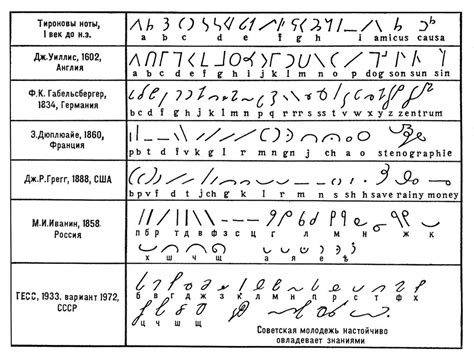 Тироновы ноты,
1 век до н.э.
a b c d e f g h i l amicus causa
Дж.Уиллис, 1602,
Англия
a b c d e f g h l j c l m n o p dog son sun sin
Ф.К. Габельсбергер,
1834, Германия
b c d f g h j k l m n p q r r s s s t v w x y z zentrum
Э.Дюплойе, 1860,
Франция
p b t d f v k g l r m n g n j ch a o stenographie
Дж.Р.Грегг, 1888, США
b p v f d t j ch g k l r m n s sh h save rainy money
М.И.Иванин, 1858.
Россия
п б р т д в ф з с ц г л м н ж к
х ш ч щ а я е ѣ
ГЕСС, 1933. вариант 1972,
СССР
б в г д ж з к л м н п р с т ф х
ц ч ш щ
Советская молодежь настойчиво
овладевает знаниями